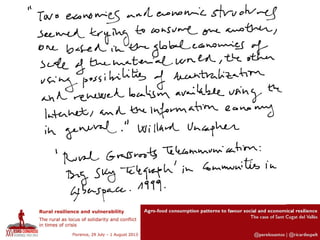 "Two economies and economic structures
seemed trying to consume one another,
one based in the global economies of
scale of the material world, the other
using possibilities of decentralization
and renewed localism available using the
Internet, and the information economy
in general." Willard Uncapher
'Rural Grassroots Telecommunication:
Big Sky Telegraph' in Communities in
Cyberspace. 1999.
Rural resilience and vulnerability
The rural as locus of solidarity and conflict
in times of crisis
Florence, 29 July – 1 August 2013
Agro-food consumption patterns to favour social and economical resilience
The case of Sant Cugat del Vallès
@perelosantos | @ricardespelt